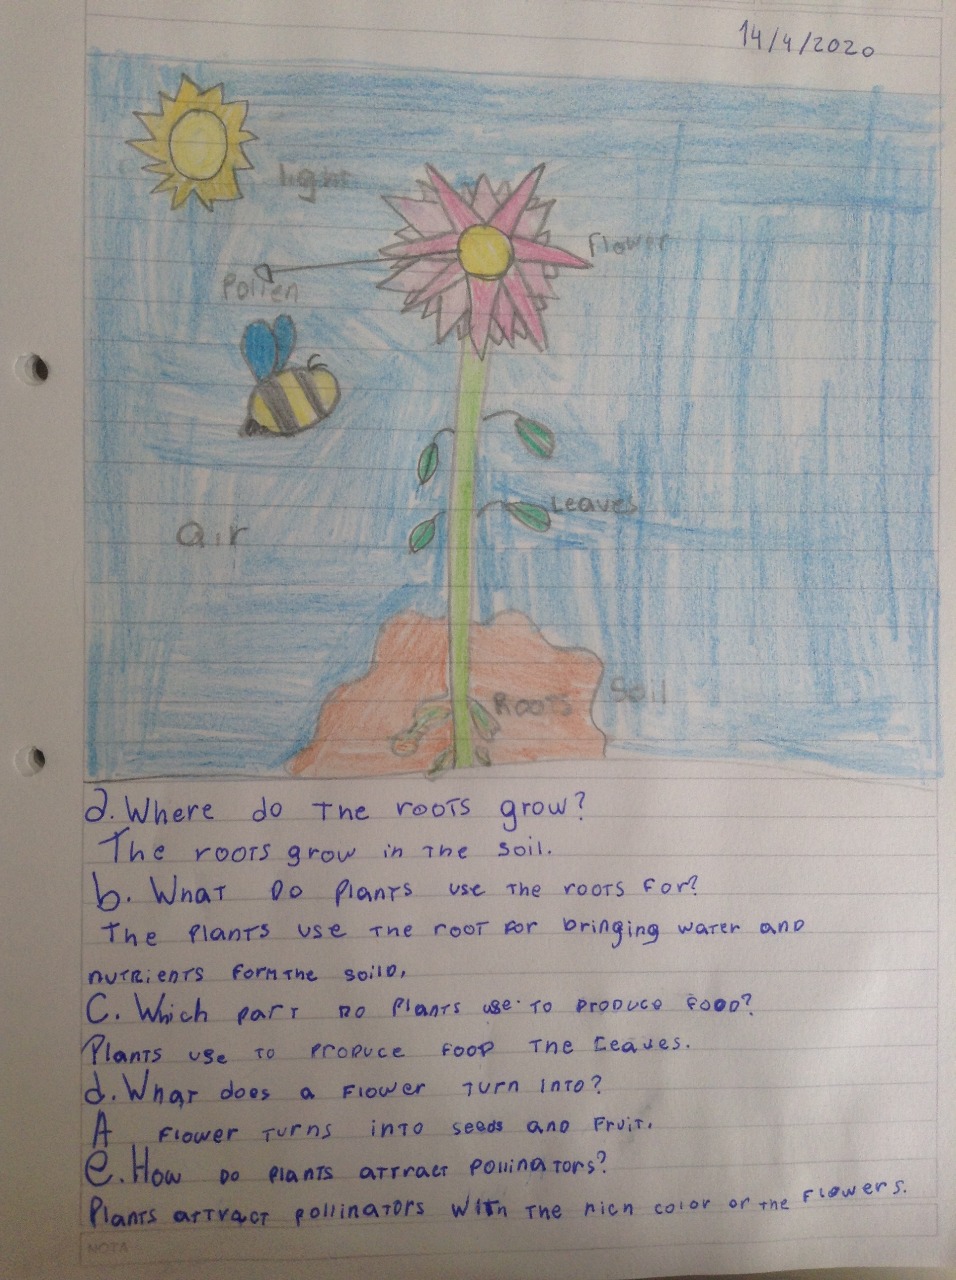 14/4/2020
light
Flower
Pollen
Leaves
air
Roots
Soil
a. Where do the roots grow?
The roots grow in the soil.
b. What Do plants use the roots for?
The plants use the root for bringing water and
nutrients form the soild,
C. Which part Do plants use to produce food?
Plants use to produce food the Leaves.
d. What does a flower turn into?
A flower turns into seeds and fruit.
e. How Do plants attract pollinators?
Plants attract pollinators with the rich color or the flowers.
NOTA